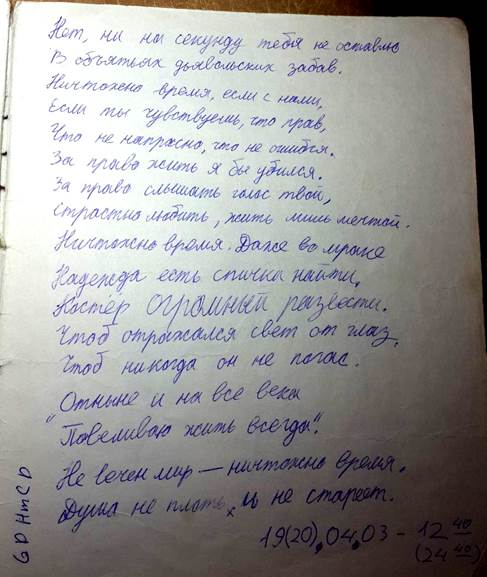 Нет, ни на секунду тебя не оставлю
В объятьях дьявольских забав.
Ничтожно время, если с нами,
Если ты чувствуешь, что прав,
Что не напрасно, что не ошибся.
За право жить я бы убился.
За право слышать голос твой,
Страстно любить, жить лишь мечтой.
Ничтожно время. Даже во мраке
Надежда есть спички найти,
Костёр огромный развести.
Чтоб отражался свет от глаз,
Чтоб никогда он не погас.
"Отныне и на все века
Повелеваю жить всегда".
Не вечен мир – ничтожно время.
Душа не плоть, и не стареет.
19(20).04.03 – 12 40
(24 40)